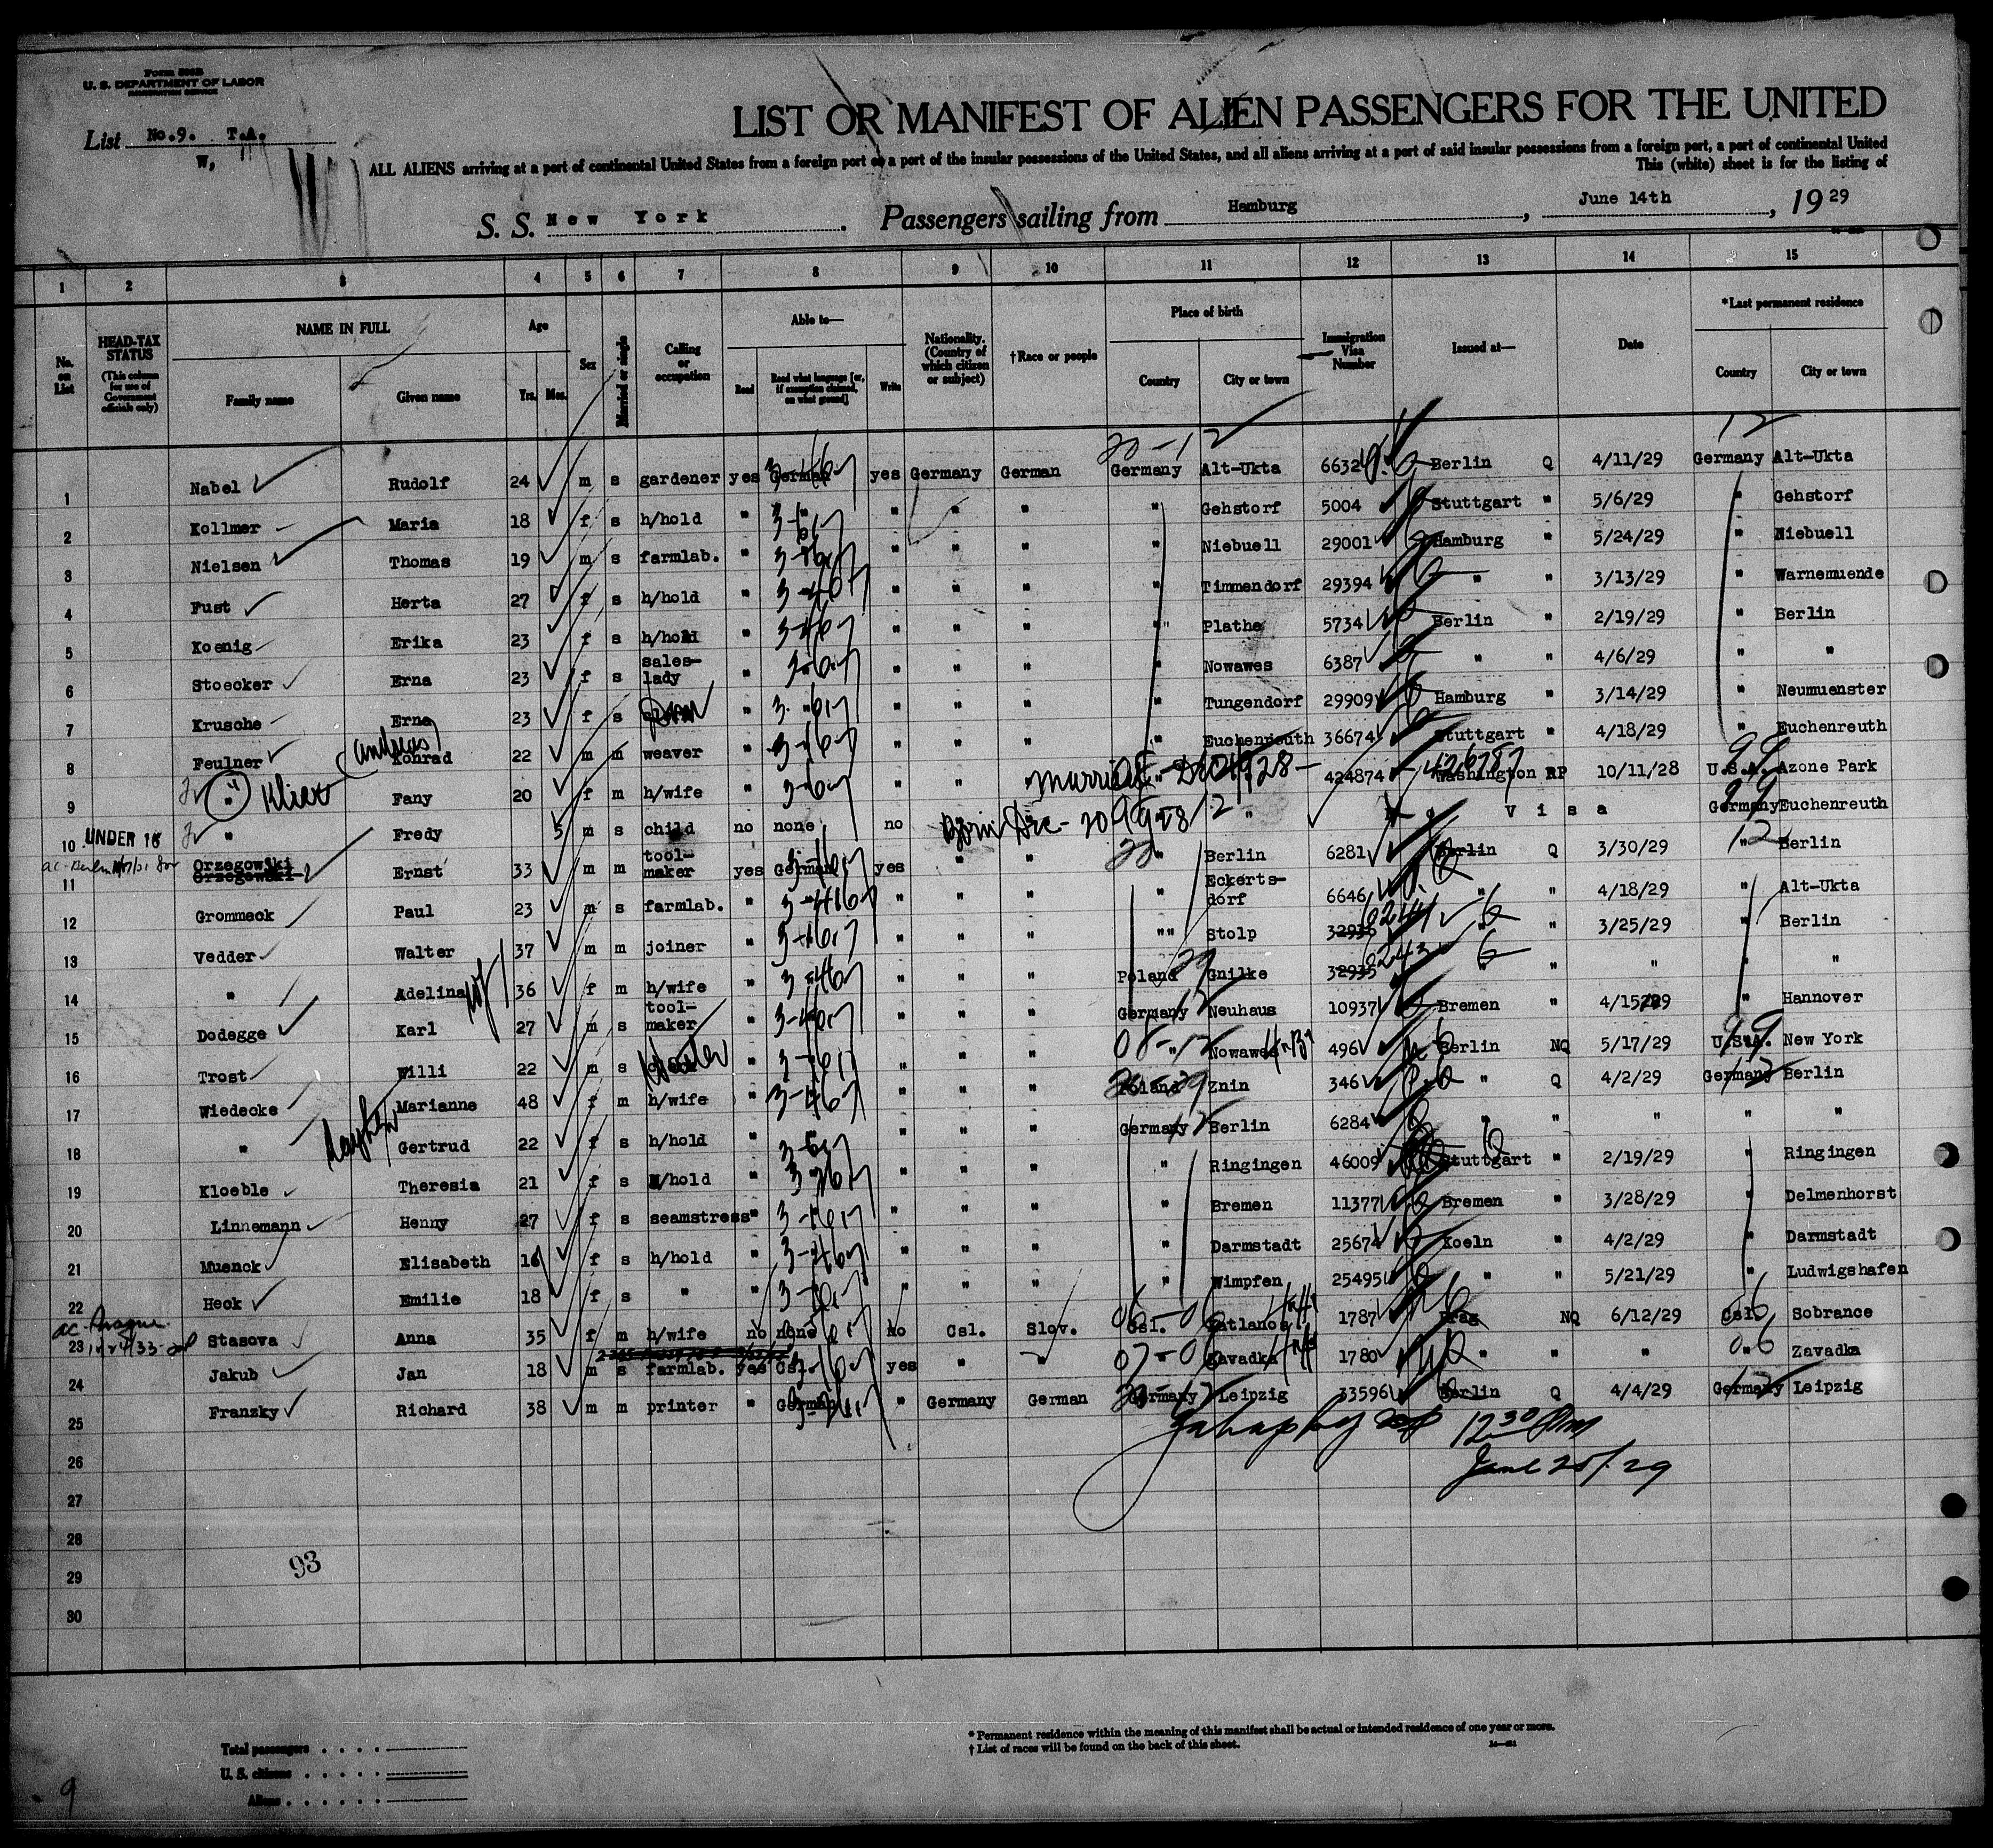 Form 500B
U. S. DEPARTMENT OF LABOR
IMMIGRATION SERVICE
List No.9. T.A.
W,
LIST OR MANIFEST OF ALIEN PASSENGERS FOR THE UNITED
ALL ALIENS arriving at a port of continental United States from a foreign port or a port of the insular possessions of the United States, and all aliens arriving at a port of said insular possessions from a foreign port, a port of continental United
This (white) sheet is for the listing of
S. S. New York. Passengers sailing from Hamburg, June 14th, 19 29
1 2 3 4 5 6 7 8 9 10 11 12 13 14 15
No. on List
HEAD-TAX STATUS (This column for use of Government officials only)
NAME IN FULL Family name Given name
Age Yrs. Mos.
Sex
Married or single
Calling or occupation
Able to— Read Read what language [or, if exemption claimed, on what ground] Write
Nationality. (Country of which citizen or subject)
†Race or people
Place of birth Country City or town
Immigration Visa Number
Issued at—
Date
*Last permanent residence Country City or town
20-12 12
1 Nabel Rudolf 24 m s gardener yes German yes Germany German Germany Alt-Ukta 6632 Berlin Q 4/11/29 Germany Alt-Ukta
2 Kollmer Maria 18 f s h/hold " " " " " " Gehstorf 5004 Stuttgart " 5/6/29 " Gehstorf
3 Nielsen Thomas 19 m s farmlab. " " " " " Niebuell 29001 Hamburg " 5/24/29 " Niebuell
4 Fust Herta 27 f s h/hold " " " " " Timmendorf 29394 " " 3/13/29 " Warnemuende
5 Koenig Erika 23 f s h/hold " " " " " Plathe 5734 Berlin " 2/19/29 " Berlin
6 Stoecker Erna 23 f s sales-lady " " " " " Nowawes 6387 " " 4/6/29 " "
7 Krusche Erna 23 f s " " " " " Tungendorf 29909 Hamburg " 3/14/29 " Neumuenster
8 Feulner (Andreas) Konrad 22 m m weaver " " " " " Euchenreuth 36674 Stuttgart " 4/18/29 " Euchenreuth
9 " Fany 20 f m h/wife " " " Married 424874 Washington RP 10/11/28 U.S.A. Azone Park
10 UNDER 16 " Fredy 5 m s child no none no Born Dec- 20 1928 " Visa Germany Euchenreuth
11 Orzegowski Ernst 33 m m tool-maker yes German yes " " " Berlin 6281 Berlin Q 3/30/29 " Berlin
12 Grommeck Paul 23 m s farmlab. " " " " " Eckerts-dorf 6646 " " 4/18/29 " Alt-Ukta
13 Vedder Walter 37 m m joiner " " " " " Stolp " " 3/25/29 " Berlin
14 " Adelina 36 f m h/wife " " " " Poland Gnilke 32935 " " " " "
15 Dodegge Karl 27 m s tool-maker " " " " Germany Neuhaus 10937 Bremen " 4/15/29 " Hannover
16 Trost Willi 22 m s " " " " " Nowawes 496 Berlin NQ 5/17/29 U.S.A. New York
17 Wiedecke Marianne 48 f m h/wife " " " " Poland Znin 346 " Q 4/2/29 Germany Berlin
18 " Gertrud 22 f s h/hold " " " " Germany Berlin 6284 " " " " "
19 Kloeble Theresia 21 f s h/hold " " " " " Ringingen 46009 Stuttgart " 2/19/29 " Ringingen
20 Linnemann Henny 27 f s seamstress " " " " " Bremen 11377 Bremen " 3/28/29 " Delmenhorst
21 Muenck Elisabeth 16 f s h/hold " " " " " Darmstadt 25674 Koeln " 4/2/29 " Darmstadt
22 Heck Emilie 18 f s " " " " " " Wimpfen 25495 " " 5/21/29 " Ludwigshafen
23 Stasova Anna 35 f m h/wife no none no Csl. Slov. Csl. 1787 Prag NQ 6/12/29 Csl. Sobrance
24 Jakub Jan 18 m s farmlab. yes Csl. yes " " " Zavadka 1780 " " " " Zavadka
25 Franzky Richard 38 m m printer " German " Germany German Germany Leipzig 33596 Berlin Q 4/4/29 Germany Leipzig
12 30 Pm
June 25/29
26
27
28
29
30
93
Total passengers
U. S. citizens
Aliens
* Permanent residence within the meaning of this manifest shall be actual or intended residence of one year or more.
† List of races will be found on the back of this sheet.
9